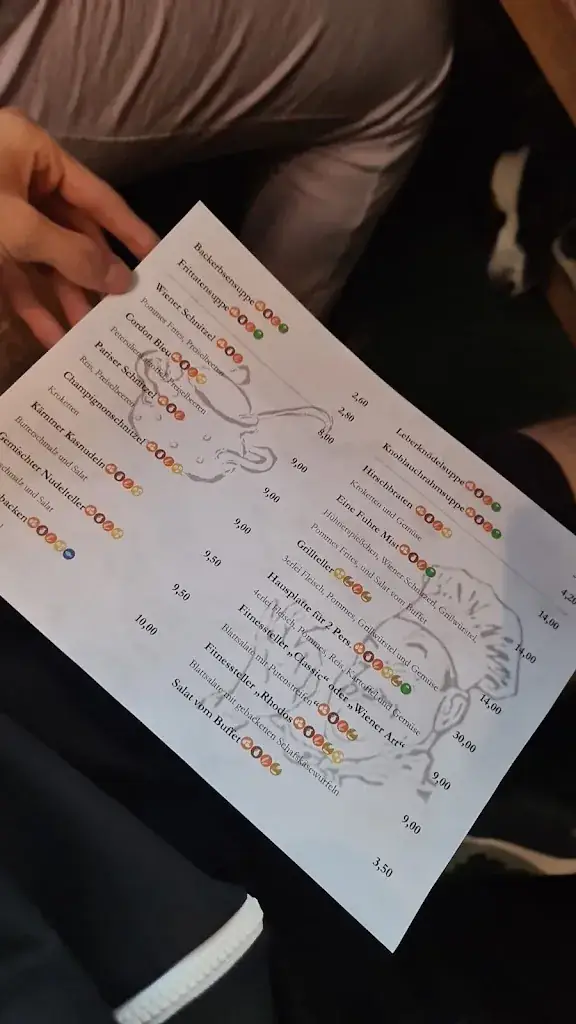 Backerbsensuppe
Frittatensuppe
Wiener Schnitzel
Pommes Frites, Preiselbeeren
Cordon Bleu
Preiselbeeren
Pariser Schnitzel
Reis, Preiselbeeren
Champignonschnitzel
Kroketten
Kärntner Kasnudeln
Butterschmalz und Salat
Gemischter Nudelteller
und Salat
2,60
2,80
8,00
9,00
9,00
9,00
9,50
9,50
10,00
Leberknödelsuppe
Knoblauchrahmsuppe
Hirschbraten
Kroketten und Gemüse
Eine Fuhre Mist
Hühnerspießchen, Wiener Schnitzerl, Grillwürstel,
Pommes Frites, und Salat vom Buffet
Grillteller
3erlei Fleisch, Pommes, Grillwürstel und Gemüse
Hausplatte für 2 Pers.
4erlei Fleisch, Pommes, Reis, Kartoffel und Gemüse
Fitnessteller „Classic“ oder „Wiener Art“
Blattsalate mit Putenstreifen
Fitnessteller „Rhodos“
Blattsalate mit gehacktem Schafskäsewürfeln
Salat vom Buffet
4,20
14,00
14,00
14,00
30,00
9,00
9,00
3,50